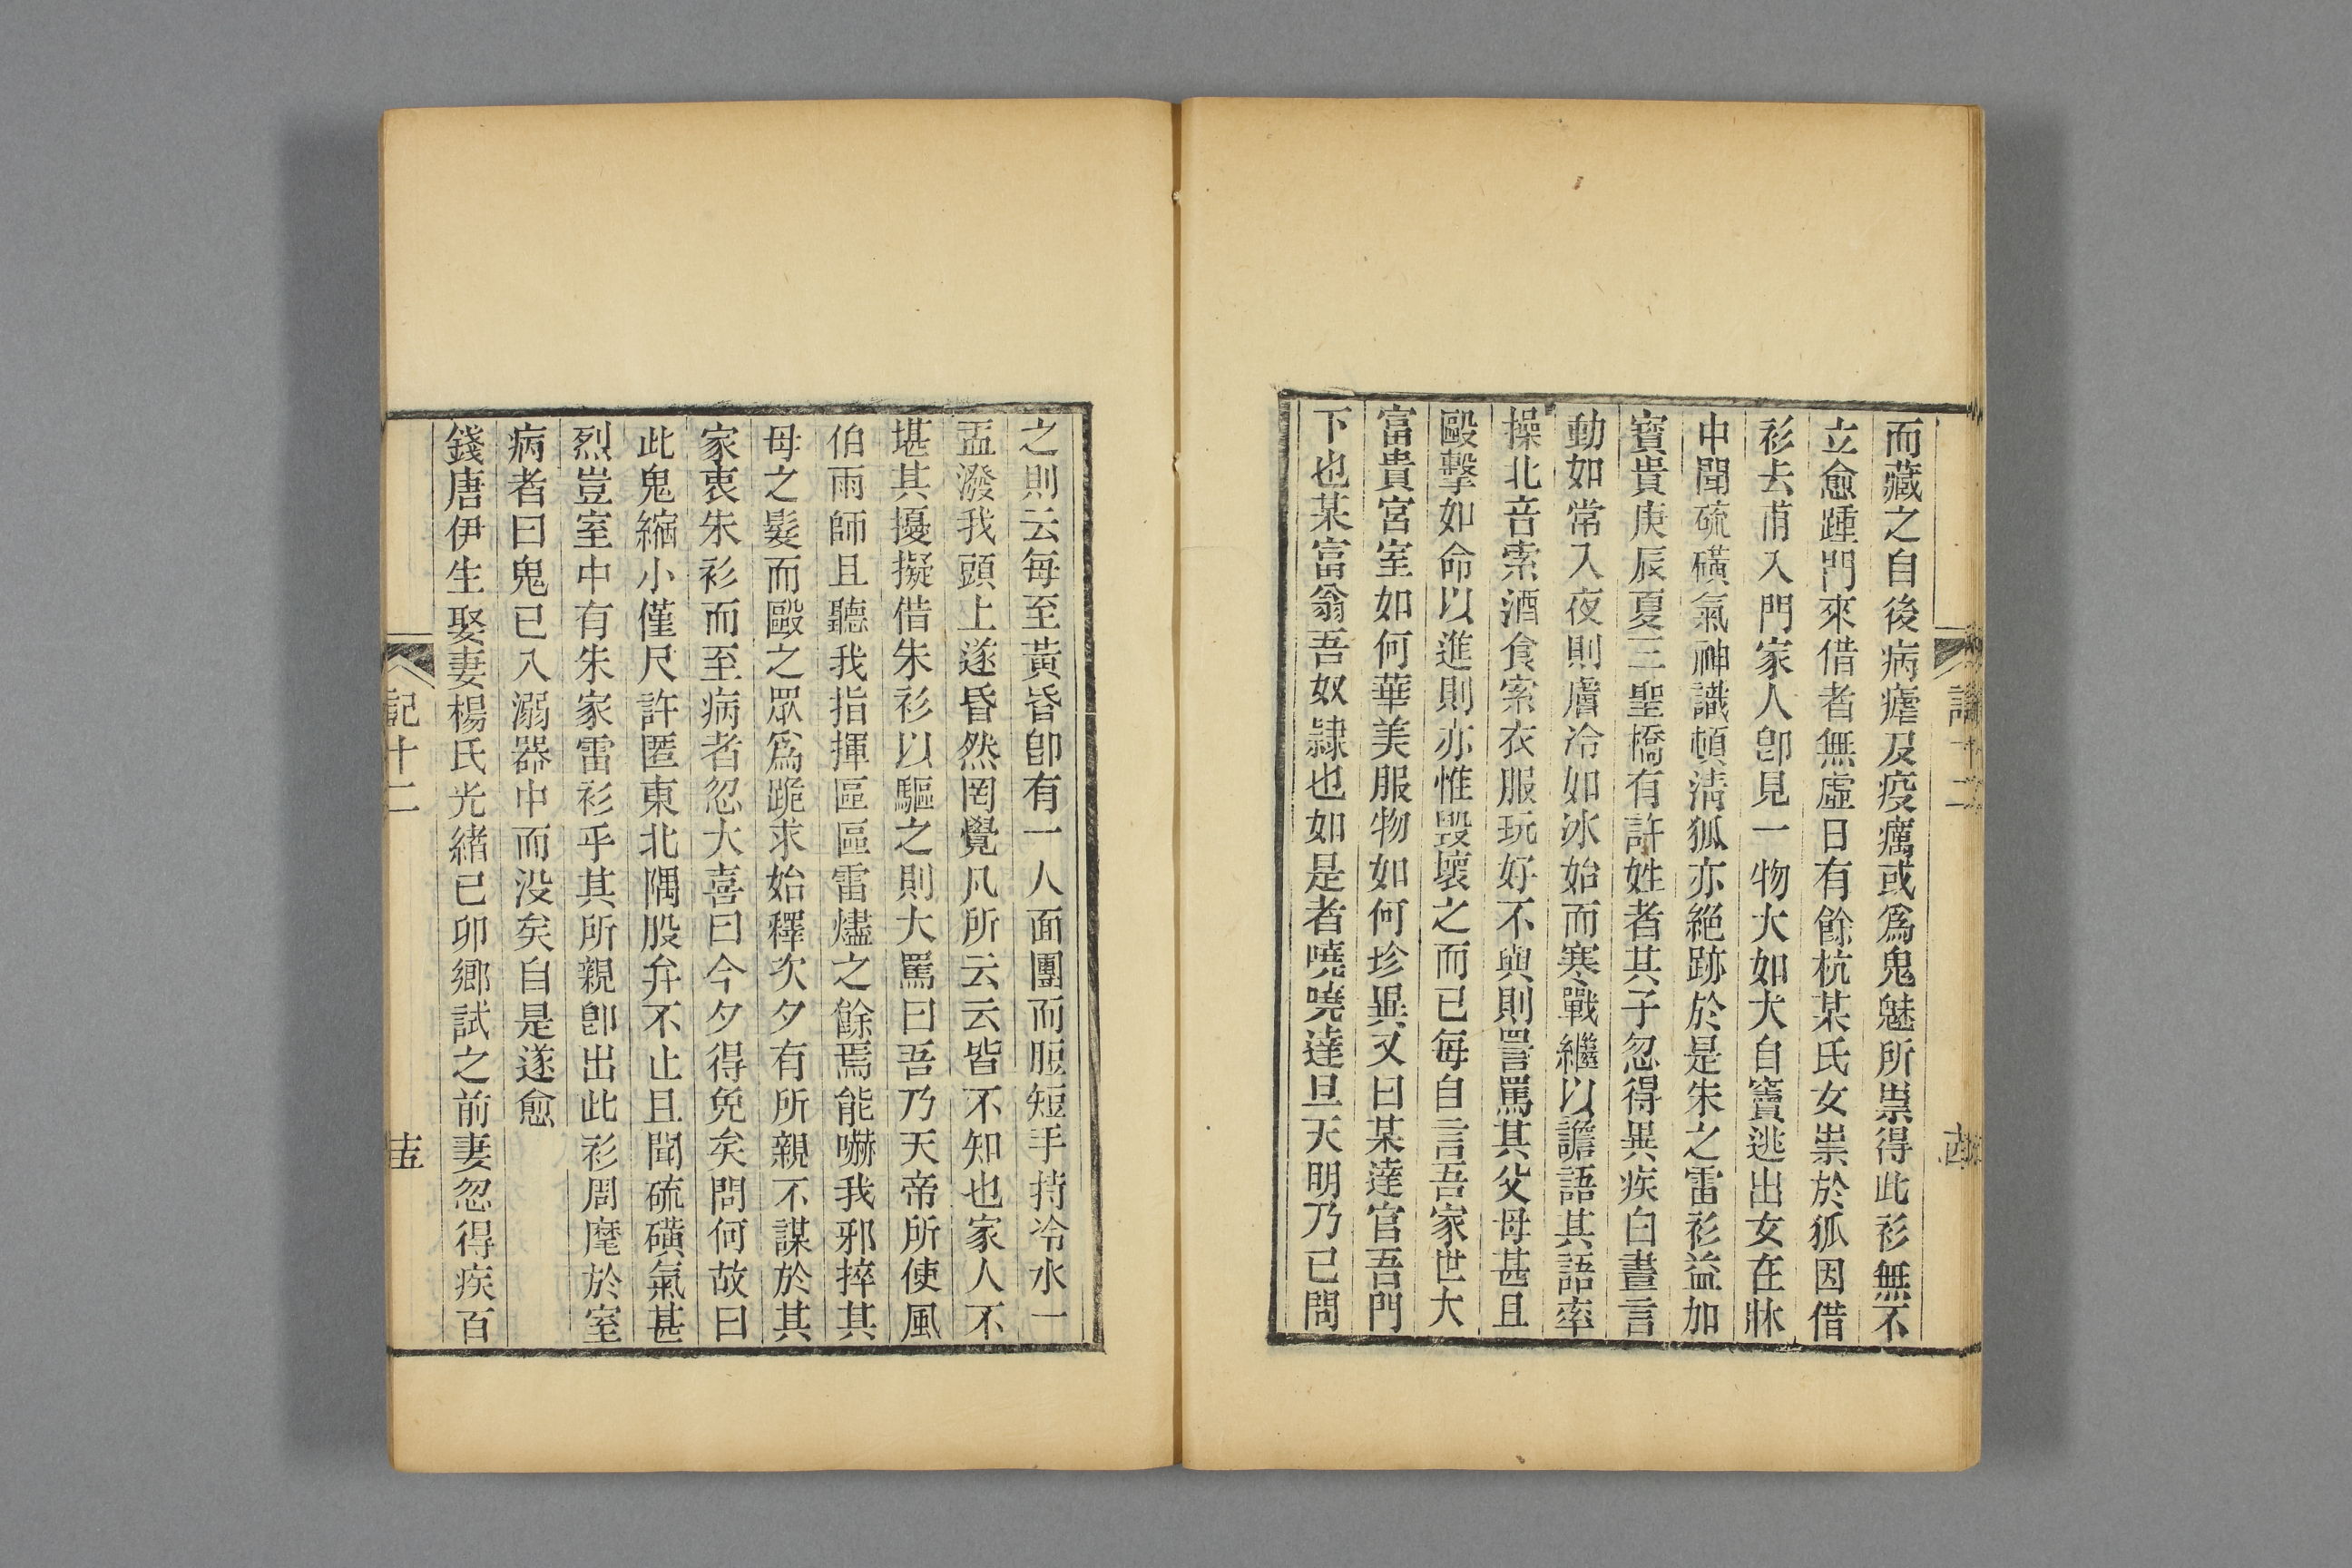 而藏之自後病瘧及疫癘或爲鬼魅所祟得此衫無不
立愈踵門來借者無虛日有餘杭某氏女祟於狐因借
衫去甫入門家人卽見一物大如犬自竇逃出女在牀
中聞硫磺氣神識頓清狐亦絶跡於是朱之雷衫益加
寶貴庚辰夏三聖橋有許姓者其子忽得異疾白晝言
動如常入夜則膚冷如冰始而寒戰繼以譫語其語率
操北音索酒食索衣服玩好不與則詈罵其父母甚且
毆擊如命以進則亦惟毀壞之而已每自言吾家世大
富貴宮室如何華美服物如何珍異又曰某達官吾門
下也某富翁吾奴隸也如是者嘵嘵達旦天明乃已問
之則云每至黃昏卽有一人面團而脰短手持冷水一
盂潑我頭上遂昏然罔覺凡所云云皆不知也家人不
堪其擾擬借朱衫以驅之則大罵曰吾乃天帝所使風
伯雨師且聽我指揮區區雷燼之餘焉能嚇我邪捽其
母之髮而毆之眾爲跪求始釋次夕有所親不謀於其
家衷朱衫而至病者忽大喜曰今夕得免矣問何故曰
此鬼縮小僅尺許匿東北隅股弁不止且聞硫磺氣甚
烈豈室中有朱家雷衫乎其所親卽出此衫周麾於室
病者曰鬼已入溺器中而没矣自是遂愈
錢唐伊生娶妻楊氏光緒己卯鄉試之前妻忽得疾百
記十二
十五